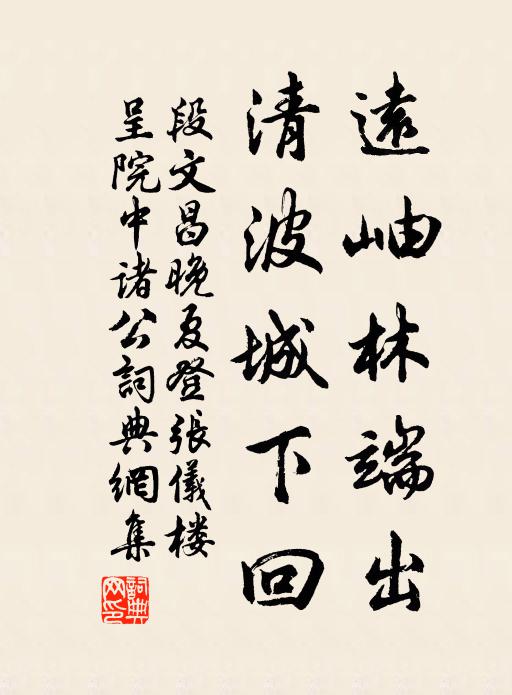 遠岫林端出
清波城下回
段文昌晚夏登張儀楼
呈院中诸公詞典網集
詞典網印